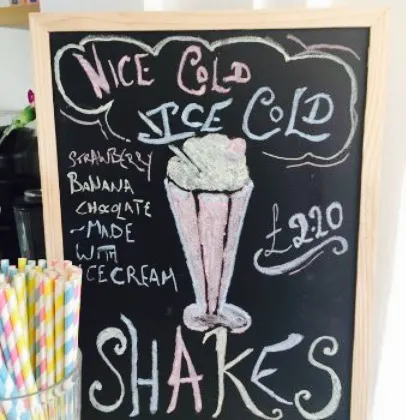 NICE COLD
ICE COLD
STRAWBERRY
BANANA
CHOCOLATE
~MADE
WITH
ICECREAM
£2.20
SHAKES